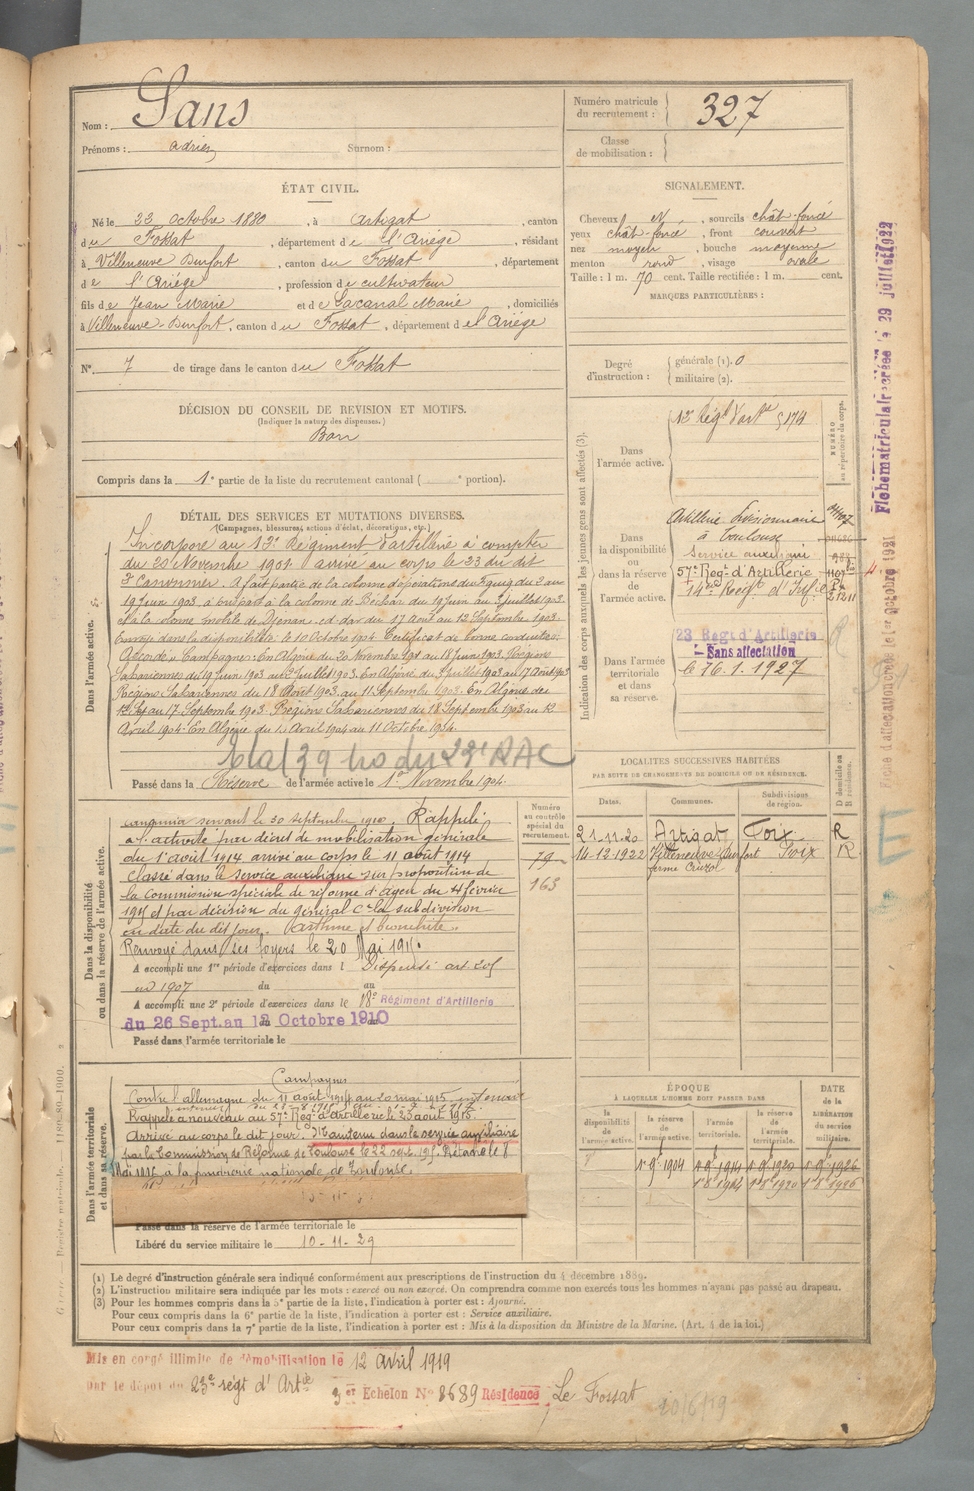 Nom : Sans
Prénoms : Adrien Surnom :
Numéro matricule du recrutement : 327
Classe de mobilisation :
ÉTAT CIVIL.
Né le 23 Octobre 1880, à Artigat, canton
du Fossat, département de l'Ariège, résidant
à Villeneuve Durfort, canton du Fossat, département
de l'Ariège, profession de cultivateur
fils de Jean Marie et de Lacanal Marie, domiciliés
à Villeneuve-Durfort, canton du Fossat, département de l'Ariège
N° 7 de tirage dans le canton du Fossat
SIGNALEMENT.
Cheveux N, sourcils chât-foncé
yeux chât-foncé, front couvert
nez moyen, bouche moyenne
menton rond, visage ovale
Taille : 1 m. 70 cent. Taille rectifiée : 1 m. cent.
MARQUES PARTICULIÈRES :
Degré d'instruction : générale (1). 0
militaire (2).
DÉCISION DU CONSEIL DE REVISION ET MOTIFS.
(Indiquer la nature des dispenses.)
Bon
Compris dans la 1e partie de la liste du recrutement cantonal ( e portion).
DÉTAIL DES SERVICES ET MUTATIONS DIVERSES.
(Campagnes, blessures, actions d'éclat, décorations, etc.)
Dans l'armée active.
Incorporé au Régiment d'artillerie à compter
du 20 Novembre 1901 arrivé au corps le 23 du dit
2e Canonnier. A fait partie de la colonne d'opérations du du 2 au
19 Juin 1903, à pris part à la colonne de Béchar du 19 Juin au 2 juillet 1903
et à la colonne mobile de Djenan-ed-dar du 17 Août au 12 Septembre 1903.
Envoyé dans la disponibilité le 10 Octobre 1904 Certificat de bonne conduite :
Accordé. Campagnes : En Algérie du 20 Novembre 1901 au 18 Juin 1903. Régions
Sahariennes du 19 Juin 1903 au 2 Juillet 1903. En Algérie du 3 Juillet 1903 au 17 Août 1903
Régions Sahariennes du 18 Août 1903 au 11 Septembre 1903. En Algérie du
au 17 Septembre 1903. Régions Sahariennes du 18 Septembre 1903 au 12
Avril 1904. En Algérie du 13 Avril 1904 au 11 Octobre 1904.
Passé dans la Réserve de l'armée active le 1er Novembre 1904.
Indication des corps auxquels les jeunes gens sont affectés (3).
NUMÉRO au répertoire du corps.
Dans l'armée active.
Régt d'Artie 5174
Dans la disponibilité ou dans la réserve de l'armée active.
Artillerie Divisionnaire
à Toulouse
Service auxiliaire
57e Regt d'Artillerie
14e Regt d'Infie
Dans l'armée territoriale et dans sa réserve.
23 Régt d'Artillerie
Sans affectation
le 1927
Fiche matriculaire créée le 29 juillet 1922
LOCALITÉS SUCCESSIVES HABITÉES
PAR SUITE DE CHANGEMENTS DE DOMICILE OU DE RÉSIDENCE.
Dates. Communes. Subdivisions de région. D domicile ou R résidence.
21-11-20 Artigat Foix R
14-12-1922 Villeneuve Durfort Foix R
ferme
Dans la disponibilité ou dans la réserve de l'armée active.
Numéro au contrôle spécial du recrutement.
79
163
canonnier servant le 30 septembre 1910. Rappelé
à l'activité par décret de mobilisation générale
du 1er août 1914 arrivé au corps le 11 août 1914
Classé dans le service auxiliaire sur proposition de
la Commission spéciale de réforme d'Agen du 4 février
1915 et par décision du général Ct la subdivision
en date du dit jour. Asthme et bronchite.
Renvoyé dans ses foyers le 20 Mai 1915.
A accompli une 1re période d'exercices dans l Dispensé art.
en 1907 du au
A accompli une 2e période d'exercices dans le 18e Régiment d'Artillerie
du 26 Sept. au 12 Octobre 1910
Passé dans l'armée territoriale le
Dans l'armée territoriale et dans sa réserve.
Campagnes
Contre l'allemagne du 11 août 1914 au 20 mai 1915
Rappelé à nouveau au 57e Regt d'Artillerie le 23 août 1915.
Arrivé au corps le dit jour. Maintenu dans le service auxiliaire
par la Commission de Réforme de Toulouse le 22 sept. 1915. Détaché le 8
Mai à la poudrerie nationale de Toulouse.
Passé dans la réserve de l'armée territoriale le
Libéré du service militaire le 10-11-29
ÉPOQUE
À LAQUELLE L'HOMME DOIT PASSER DANS
la disponibilité de l'armée active. la réserve de l'armée active. l'armée territoriale. la réserve de l'armée territoriale.
DATE de la LIBÉRATION du service militaire.
1er 9bre 1904 1er 9bre 1914 1er 9bre 1920 1er 9bre 1926
(1) Le degré d'instruction générale sera indiqué conformément aux prescriptions de l'instruction du 4 décembre 1889.
(2) L'instruction militaire sera indiquée par les mots : exercé ou non exercé. On comprendra comme non exercés tous les hommes n'ayant pas passé au drapeau.
(3) Pour les hommes compris dans la 5e partie de la liste, l'indication à porter est : Ajourné.
Pour ceux compris dans la 6e partie de la liste, l'indication à porter est : Service auxiliaire.
Pour ceux compris dans la 7e partie de la liste, l'indication à porter est : Mis à la disposition du Ministre de la Marine. (Art. 4 de la loi.)
Mis en congé illimité de démobilisation le 12 avril 1919
par le dépôt du 23e régt d'Artie 3e Echelon N° 8689 Résidence Le Fossat
20/6/19